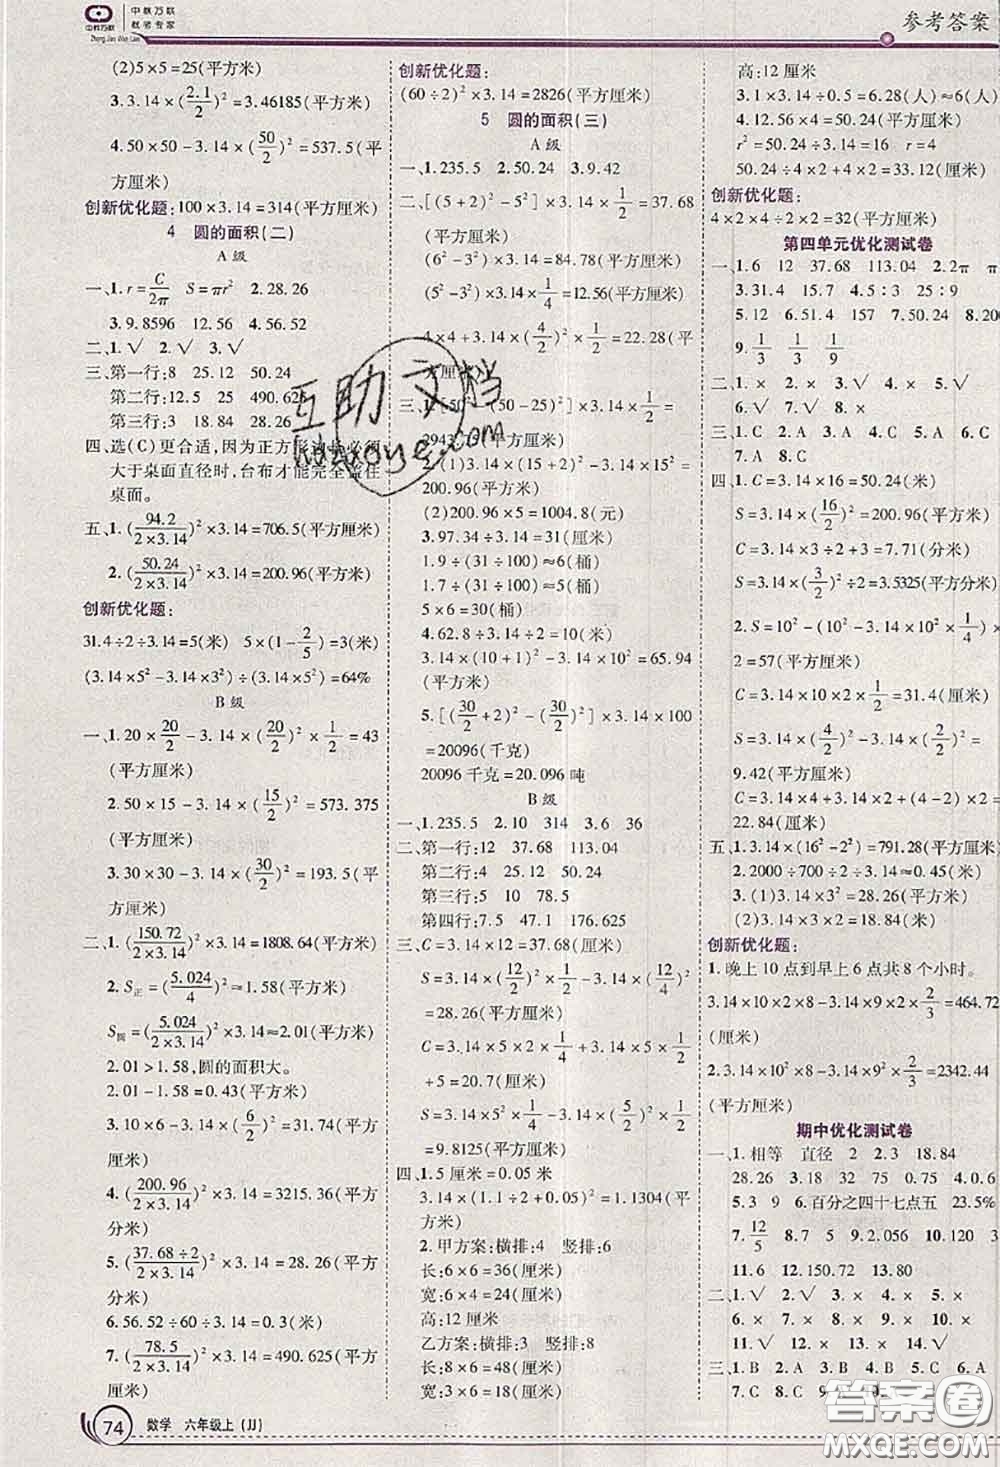 中教万联
中教万联
就考专家
参考答案
(2)5×5=25(平方米)
3.3.14×(2.1/2)²=3.46185(平方米)
4.50×50-3.14×(50/2)²=537.5(平
方厘米)
创新优化题:100×3.14=314(平方厘米)
4 圆的面积(二)
A级
一、1.r=C/2π S=πr² 2.28.26
3.9.8596 12.56 4.56.52
二、1.√ 2.√ 3.√
三、第一行:8 25 50.24
第二行:12.5 25 490.625
第三行:3 18.84 28.26
四、选(C)更合适,因为正方形边长必须
大于桌面直径时,台布才能完全盖住
桌面。
五、1.(94.2/2×3.14)²×3.14=706.5(平方厘米)
2.(50.24/2×3.14)²×3.14=200.96(平方米)
创新优化题:
31.4÷2÷3.14=5(米) 5×(1-2/5)=3(米)
(3.14×5²-3.14×3²)÷(3.14×5²)=64%
B级
一、1.20×20/2-3.14×(20/2)²×1/2=43
(平方厘米)
2.50×15-3.14×(15/2)²=573.375
(平方厘米)
3.30×30-3.14×(30/2)²=193.5(平
方厘米)
二、1.(150.72/2×3.14)²×3.14=1808.64(平方米)
2.S正=(5.024/4)²≈1.58(平方米)
S圆=(5.024/2×3.14)²×3.14≈2.01(平方米)
2.01>1.58,圆的面积大。
2.01-1.58=0.43(平方米)
3.10×6-3.14×(6/2)²=31.74(平方
厘米)
4.(200.96/2×3.14)²×3.14=3215.36(平方
分米)
5.(37.68÷2/2×3.14)²×3.14=28.26(平方
分米)
6.56.52÷60÷3.14=0.3(米)
7.(78.5/2×3.14)²×3.14=490.625(平方
厘米)
创新优化题:
(60÷2)²×3.14=2826(平方厘米)
5 圆的面积(三)
A级
一、1.235.5 2.50.24 3.9.42
二、[(5+2)²-5²]×3.14×1/2=37.68
(平方厘米)
(6²-3²)×3.14=84.78(平方厘米)
(5²-3²)×3.14×1/4=12.56(平方厘米)
4×4+3.14×(4/2)²×1/2=22.28(平
方厘米)
三、1.[50²-(50-25)²]×3.14×1/2=
2943.75(平方厘米)
2.(1)3.14×17²-3.14×15²=
200.96(平方米)
(2)200.96×5=1004.8(元)
3.97.34÷3.14=31(厘米)
1.9÷(31÷100)≈6(桶)
1.7÷(31÷100)≈5(桶)
5×6=30(桶)
4.62.8÷3.14÷2=10(米)
3.14×(10+1)²-3.14×10²=65.94
(平方米)
5.[(30/2+2)²-(30/2)²]×3.14×100
=20096(千克)
20096千克=20.096吨
B级
一、1.235.5 2.10 314 3.6 36
二、第一行:12 37.68 113.04
第二行:4 25.12 50.24
第三行:5 10 78.5
第四行:7.5 47.1 176.625
三、C=3.14×12=37.68(厘米)
S=3.14×(12/2)²×1/2-3.14×(12/4)²
=28.26(平方厘米)
C=3.14×5×2×1/4+3.14×5×1/2
+5=20.7(厘米)
S=3.14×5²×1/4-3.14×(5/2)²×1/2
=9.8125(平方厘米)
四、1.5厘米=0.05米
3.14×(1.1÷2+0.05)²=1.1304(平
方米)
2.甲方案:横排:4 竖排:6
长:6×6=36(厘米)
宽:6×4=24(厘米)
高:12厘米
乙方案:横排:3 竖排:8
长:6×8=48(厘米)
宽:6×3=18(厘米)
高:12厘米
3.1×3.14÷0.5=6.28(人)≈6(人)
4.12.56×4=50.24(平方厘米)
r²=50.24÷3.14=16 r=4
50.24÷4×2+4×2=33.12(厘米)
创新优化题:
4×2×4÷2×2=32(平方厘米)
第四单元优化测试卷
一、1.6 12 37.68 113.04 2.2π π
3.31.4 15.7 4.5:3 25:9
5.12 6.51.4 157 7.50.24 8.200
9.1/3 1/3 1/9
二、1.× 2.× 3.× 4.× 5.×
6.√ 7.√ 8.×
三、1.C 2.A 3.C 4.A 5.A 6.C
7.A 8.C
四、1.C=3.14×16=50.24(米)
S=3.14×(16/2)²=200.96(平方米)
C=3.14×3÷2+3=7.71(分米)
S=3.14×(3/2)²÷2=3.5325(平方分米)
2.S=10²-(10²-3.14×10²×1/4)×
2=57(平方厘米)
C=3.14×10×2×1/2=31.4(厘米)
S=3.14×(4/2)²-3.14×(2/2)²=
9.42(平方厘米)
C=3.14×4+3.14×2+(4-2)×2=
22.84(厘米)
五、1.3.14×(16²-2²)=791.28(平方厘米)
2.2000÷700÷2÷3.14≈0.45(米)
3.(1)3.14×3²=28.26(平方米)
(2)3.14×3×2=18.84(米)
创新优化题:
1.晚上10点到早上6点共8个小时。
3.14×10×2×8-3.14×9×2×2/3=464.72
(厘米)
2.3.14×10²×8-3.14×9²×2/3=2342.44
(平方厘米)
期中优化测试卷
一、1.相等 直径 2 2.3 18.84
28.26 3.18 32 50 75 4.0.6
5.3 9 6.百分之四十七点五 23.5%
7.12/5 8.7 5 9.2.056 10.120 3
11.6 12.150.72 13.80
二、1.√ 2.√ 3.× 4.× 5.×
6.× 7.× 8.× 9.× 10.×
11.√ 12.× 13.√ 14.√ 15.×
三、1.B 2.A 3.C 4.A 5.A 6.B
7.C 8.B 9.C
74 数学 六年级上(JJ)
互助文档
hdzuoye.com
答案圈
MXQE.COM